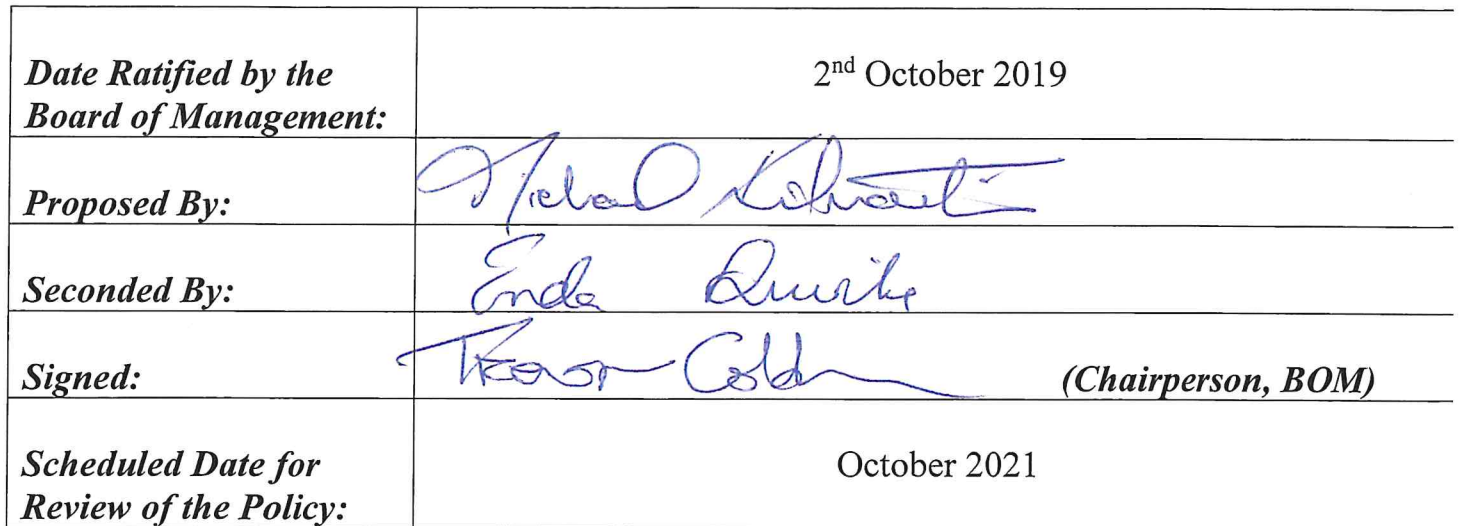 Date Ratified by the
Board of Management:
2nd October 2019
Proposed By:
Michael
Seconded By:
Enda Quirke
Signed:
Trevor
(Chairperson, BOM)
Scheduled Date for
Review of the Policy:
October 2021